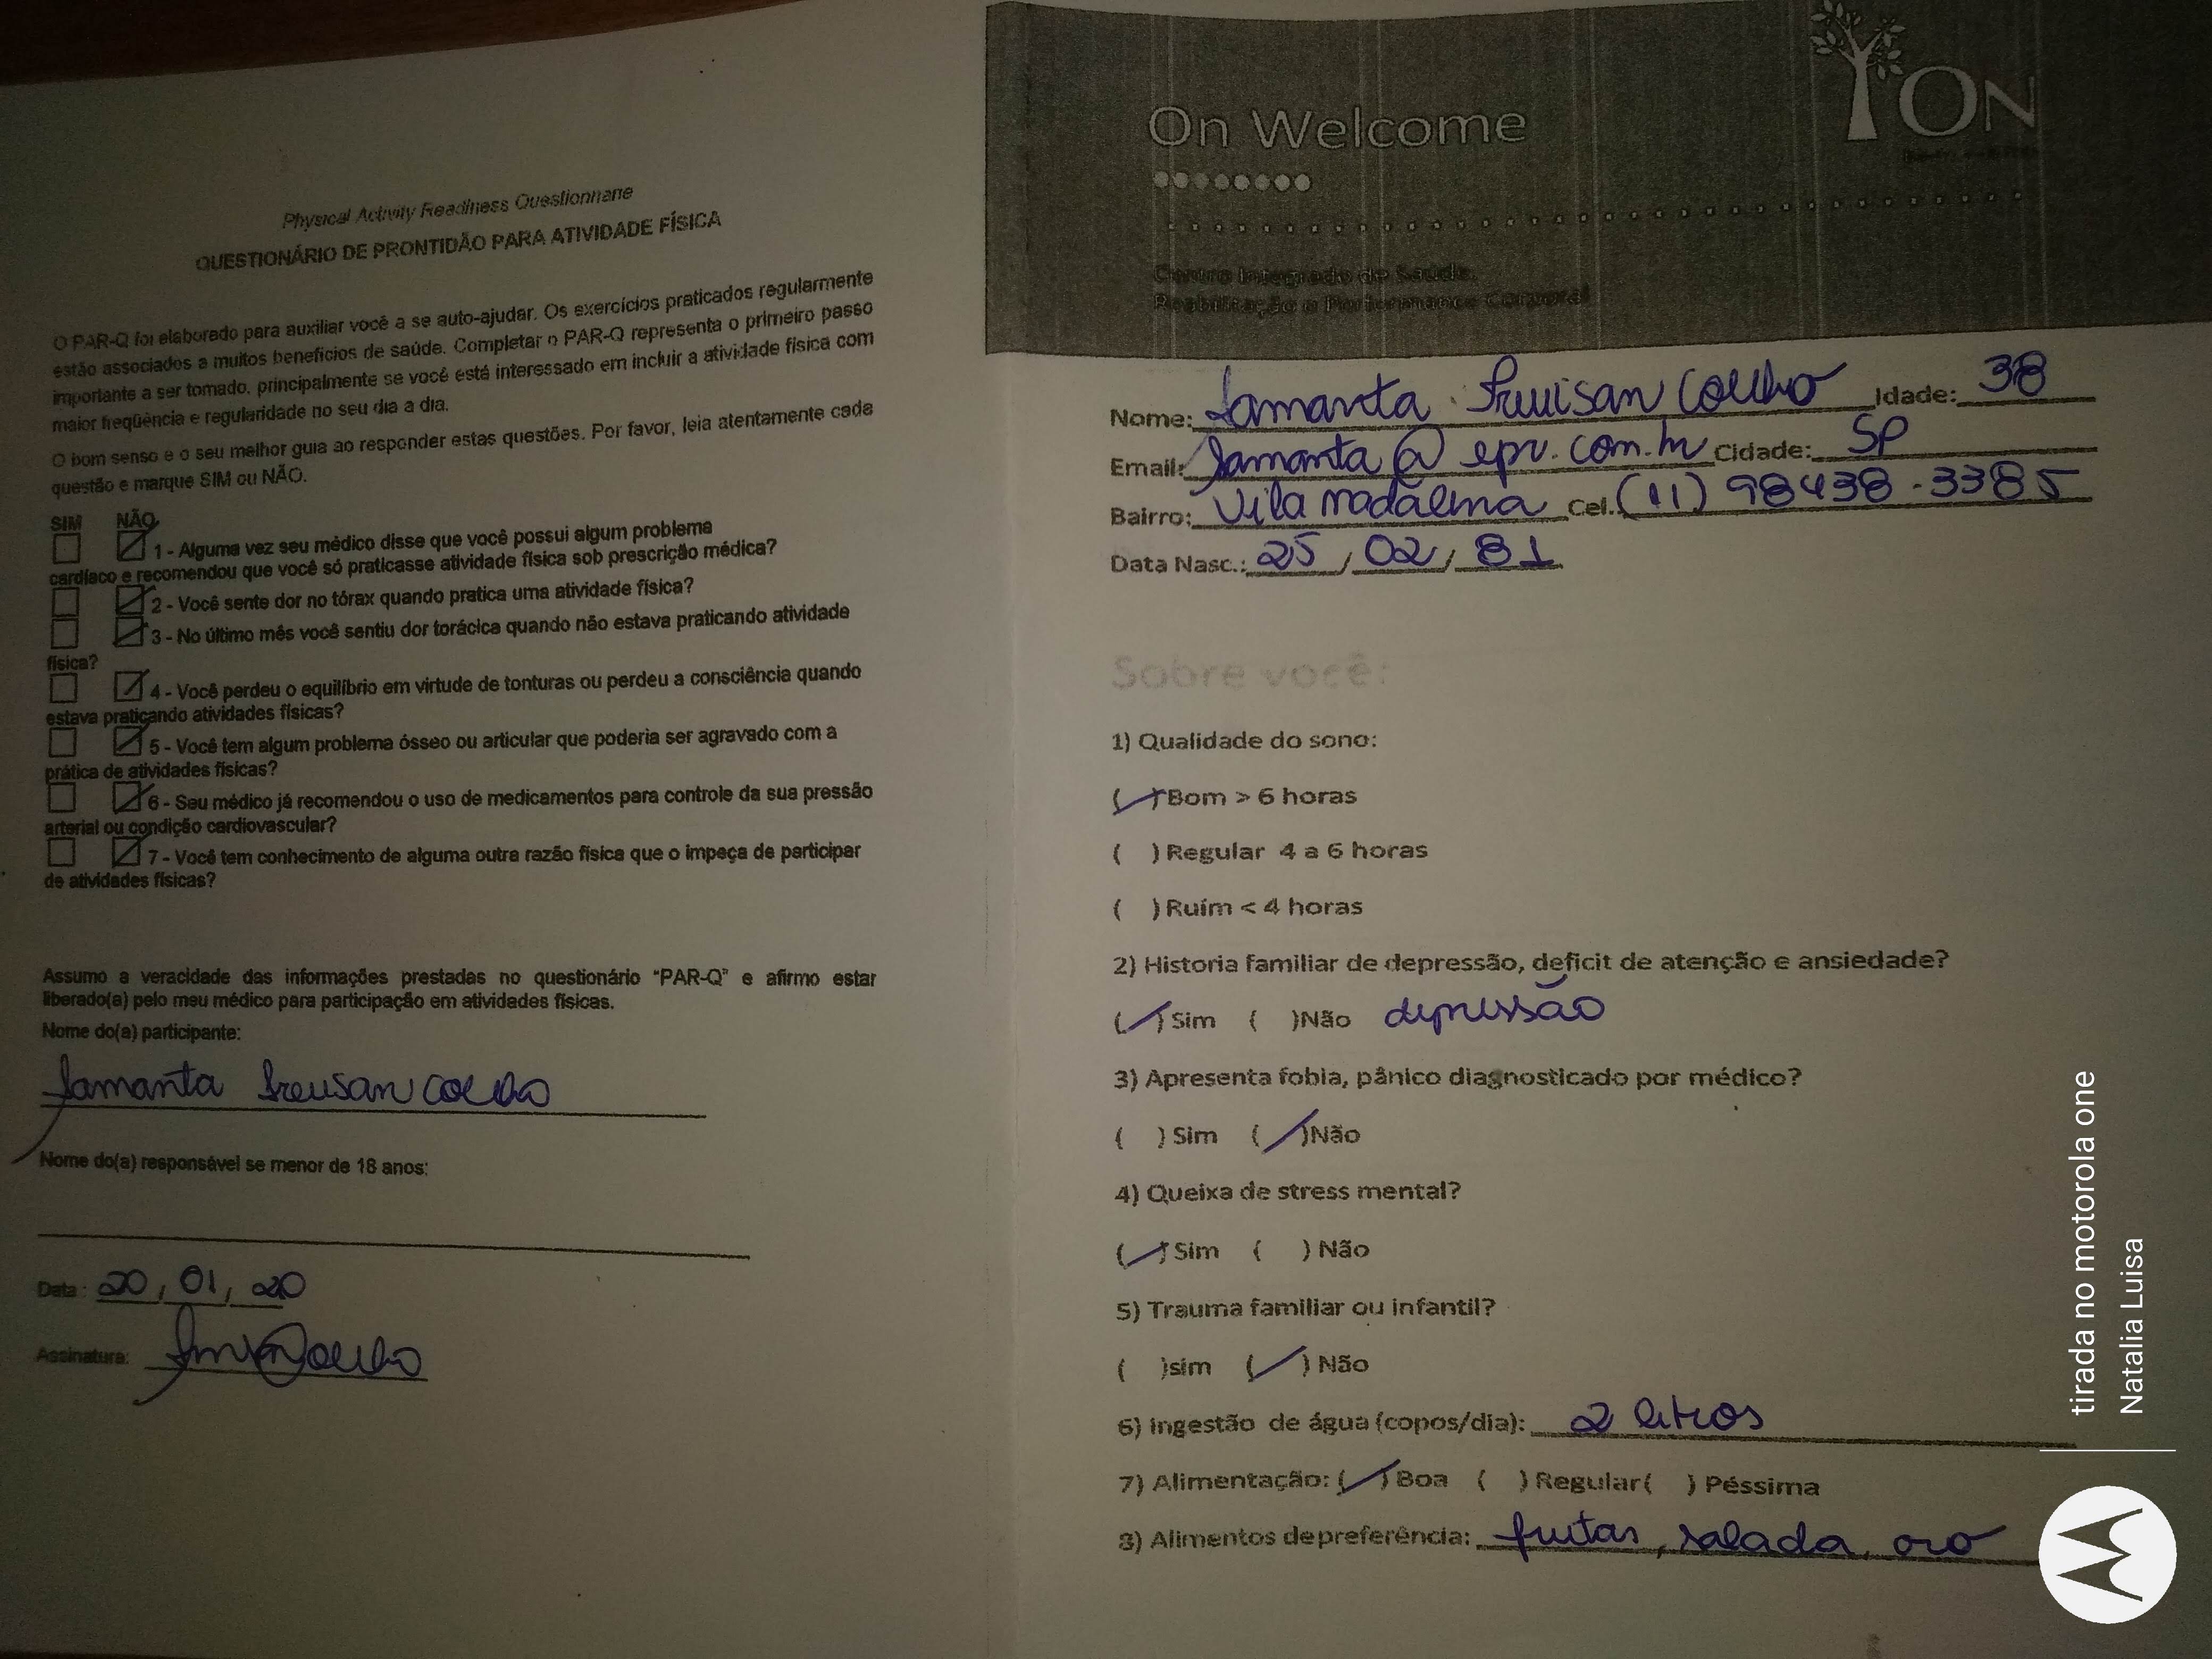 Physical Activity Readiness Questionnaire
QUESTIONÁRIO DE PRONTIDÃO PARA ATIVIDADE FÍSICA
O PAR-Q foi elaborado para auxiliar você a se auto-ajudar. Os exercícios praticados regularmente
estão associados a muitos benefícios de saúde. Completar o PAR-Q representa o primeiro passo
importante a ser tomado, principalmente se você está interessado em incluir a atividade física com
maior freqüência e regularidade no seu dia a dia.
O bom senso e o seu melhor guia ao responder estas questões. Por favor, leia atentamente cada
questão e marque SIM ou NÃO.
SIM NÃO
1 - Alguma vez seu médico disse que você possui algum problema
cardíaco e recomendou que você só praticasse atividade física sob prescrição médica?
2 - Você sente dor no tórax quando pratica uma atividade física?
3 - No último mês você sentiu dor torácica quando não estava praticando atividade
física?
4 - Você perdeu o equilíbrio em virtude de tonturas ou perdeu a consciência quando
estava praticando atividades físicas?
5 - Você tem algum problema ósseo ou articular que poderia ser agravado com a
prática de atividades físicas?
6 - Seu médico já recomendou o uso de medicamentos para controle da sua pressão
arterial ou condição cardiovascular?
7 - Você tem conhecimento de alguma outra razão física que o impeça de participar
de atividades físicas?
Assumo a veracidade das informações prestadas no questionário "PAR-Q" e afirmo estar
liberado(a) pelo meu médico para participação em atividades físicas.
Nome do(a) participante:
Samanta Coelho
Nome do(a) responsável se menor de 18 anos:
Data: 20, 01, 20
Assinatura:
On Welcome
ON
Centro Integrado de Saúde,
Reabilitação e Performance Corporal
Nome: Samanta Coelho Idade: 38
Email: samanta@epr.com.br Cidade: SP
Bairro: Vila madalena Cel. (11) 98438-3385
Data Nasc.: 25 / 02 / 81
Sobre você:
1) Qualidade do sono:
(✓) Bom > 6 horas
( ) Regular 4 a 6 horas
( ) Ruim < 4 horas
2) Historia familiar de depressão, deficit de atenção e ansiedade?
(✓) Sim ( ) Não depressão
3) Apresenta fobia, pânico diagnosticado por médico?
( ) Sim (✓) Não
4) Queixa de stress mental?
(✓) Sim ( ) Não
5) Trauma familiar ou infantil?
( ) sim (✓) Não
6) Ingestão de água (copos/dia): 2 litros
7) Alimentação: (✓) Boa ( ) Regular ( ) Péssima
8) Alimentos de preferência: frutas, salada, ovo
tirada no motorola one
Natalia Luisa